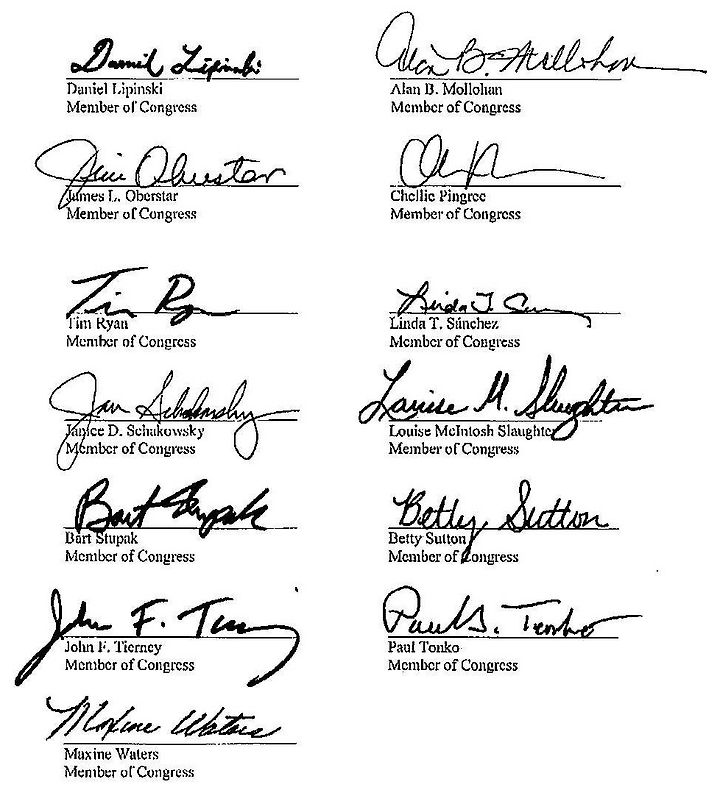 Daniel Lipinski
Daniel Lipinski
Member of Congress
Alan B. Mollohan
Alan B. Mollohan
Member of Congress
Jim Oberstar
James L. Oberstar
Member of Congress
Chellie Pingree
Member of Congress
Tim Ryan
Tim Ryan
Member of Congress
Linda T.
Linda T. Sánchez
Member of Congress
Jan Schakowsky
Janice D. Schakowsky
Member of Congress
Louise M. Slaughter
Louise McIntosh Slaughter
Member of Congress
Bart Stupak
Bart Stupak
Member of Congress
Betty Sutton
Betty Sutton
Member of Congress
John F.
John F. Tierney
Member of Congress
Paul D. Tonko
Paul Tonko
Member of Congress
Maxine Waters
Maxine Waters
Member of Congress